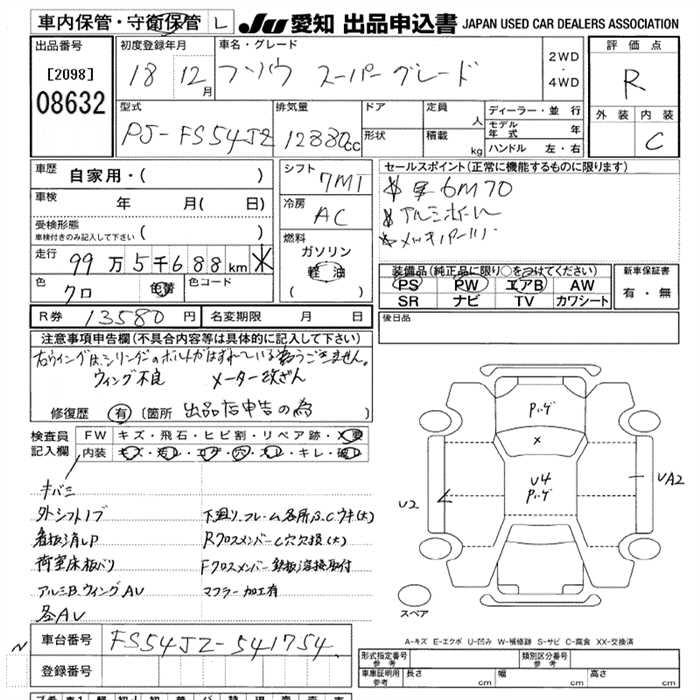 車内保管・守衛保管 L JU 愛知 出品申込書 JAPAN USED CAR DEALERS ASSOCIATION
出品番号 初度登録年月 車名・グレード 評価点
[2098] 18 12月 フソウ スーパーグレード 2WD・4WD R
08632 型式 排気量 ドア 定員 人 ディーラー・並行 外装 内装
PJ-FS54JZ 12880cc 形状 積載 kg モデル年式 年 C
ハンドル 左・右
車歴 自家用・( ) シフト 7MT セールスポイント(正常に機能するものに限ります)
車検 年 月( 日) 冷房 AC 6M70
受検形態 アルミホイール
車検付きのみ記入して下さい ( ) 燃料 メッキパーツ
走行 99万5千688km ガソリン
軽油 装備品(純正品に限り○をつけてください) 新車保証書
色 クロ 色替 色コード ( ) PS PW エアB AW 有・無
SR ナビ TV カワシート
R券 13580円 名変期限 月 日 後日品
注意事項申告欄(不具合内容等は具体的に記入して下さい)
右ウイングはシリンダーのボルトがはずれている為うごきません。
ウィング不良 メーター改ざん
修復歴 有 [箇所 出品店申告の為 ]
検査員 FW キズ・飛石・ヒビ割・リペア跡・X要
記入欄 内装 キズ・汚レ・コゲ・穴・スレ・キレ・破レ
キバミ
外シフトノブ 下廻り、フレーム各所S.Cウキ(大)
看板済レP RクロスメンバーC穴欠損(大)
荷室床板バリ Fクロスメンバー鉄板溶接取付
アルミB.ウィングAU マフラー加工有
各AU
車台番号 FS54JZ-541754
登録番号
パゲ
×
U4
パゲ
U2
UA2
スペア
A-キズ E-エクボ U-凹み W-補修跡 S-サビ C-腐食 XX-交換済
形式指定番号 参考 類別区分番号 参考
車庫証明用 参考 長さ cm 幅 cm 高さ cm